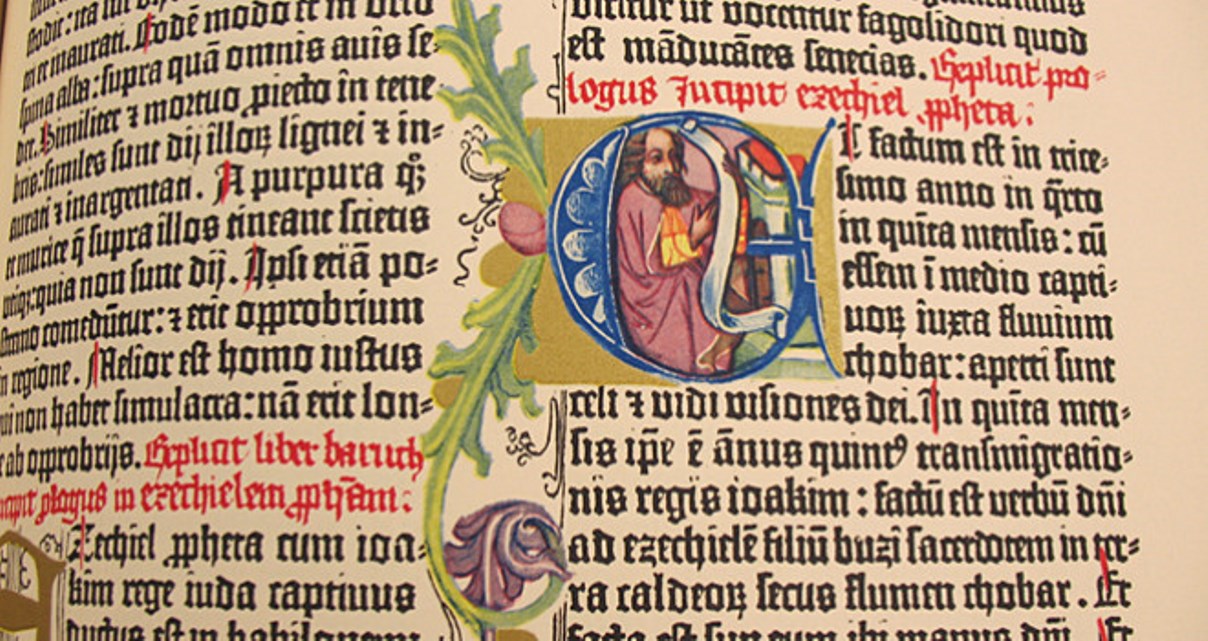 et inaurati. Eodē modo et in orto
spina alba: supra quā omnis auis se-
det. Similiter ⁊ mortuo piecto in tene-
bris: similes sunt dij illoꝝ lignei ⁊ in-
aurati ⁊ inargentati. A purpura qͦꝫ
et murice q̄ supra illos tineant scietis
quia non sunt dij. Ipsi etiā po-
stremo comedūtur: ⁊ erit opprobrium
in regione. Melior est homo iustus
qui non habet simulacra: nā erit lon-
ge ab opprobrijs. Explicit liber baruch
incipit ꝓlogus in ezechielem ꝓphetam:
Iezechiel ꝓpheta cum ioa-
kim rege iuda captiuus
ductus est in babilonem
dicitur ut vocentur fagolidori quod
est māducātes senecias. Explicit pro-
logus Incipit ezechiel ꝓpheta:
Et factum est in trice-
simo anno in q̄rto
in quīta mensis: cū
essem ī medio capti-
uoꝝ iuxta fluuium
chobar: aperti sunt
celi ⁊ vidi visiones dei. In quīta men-
sis ip̄e ē ānus quintꝰ transmigratio-
nis regis ioakim: factū est verbū dn̄i
ad ezechielē filiū buzi sacerdotem in ter-
ra caldeoꝝ secus flumen chobar. Et
facta est sup eum ibi manus dn̄i. Et